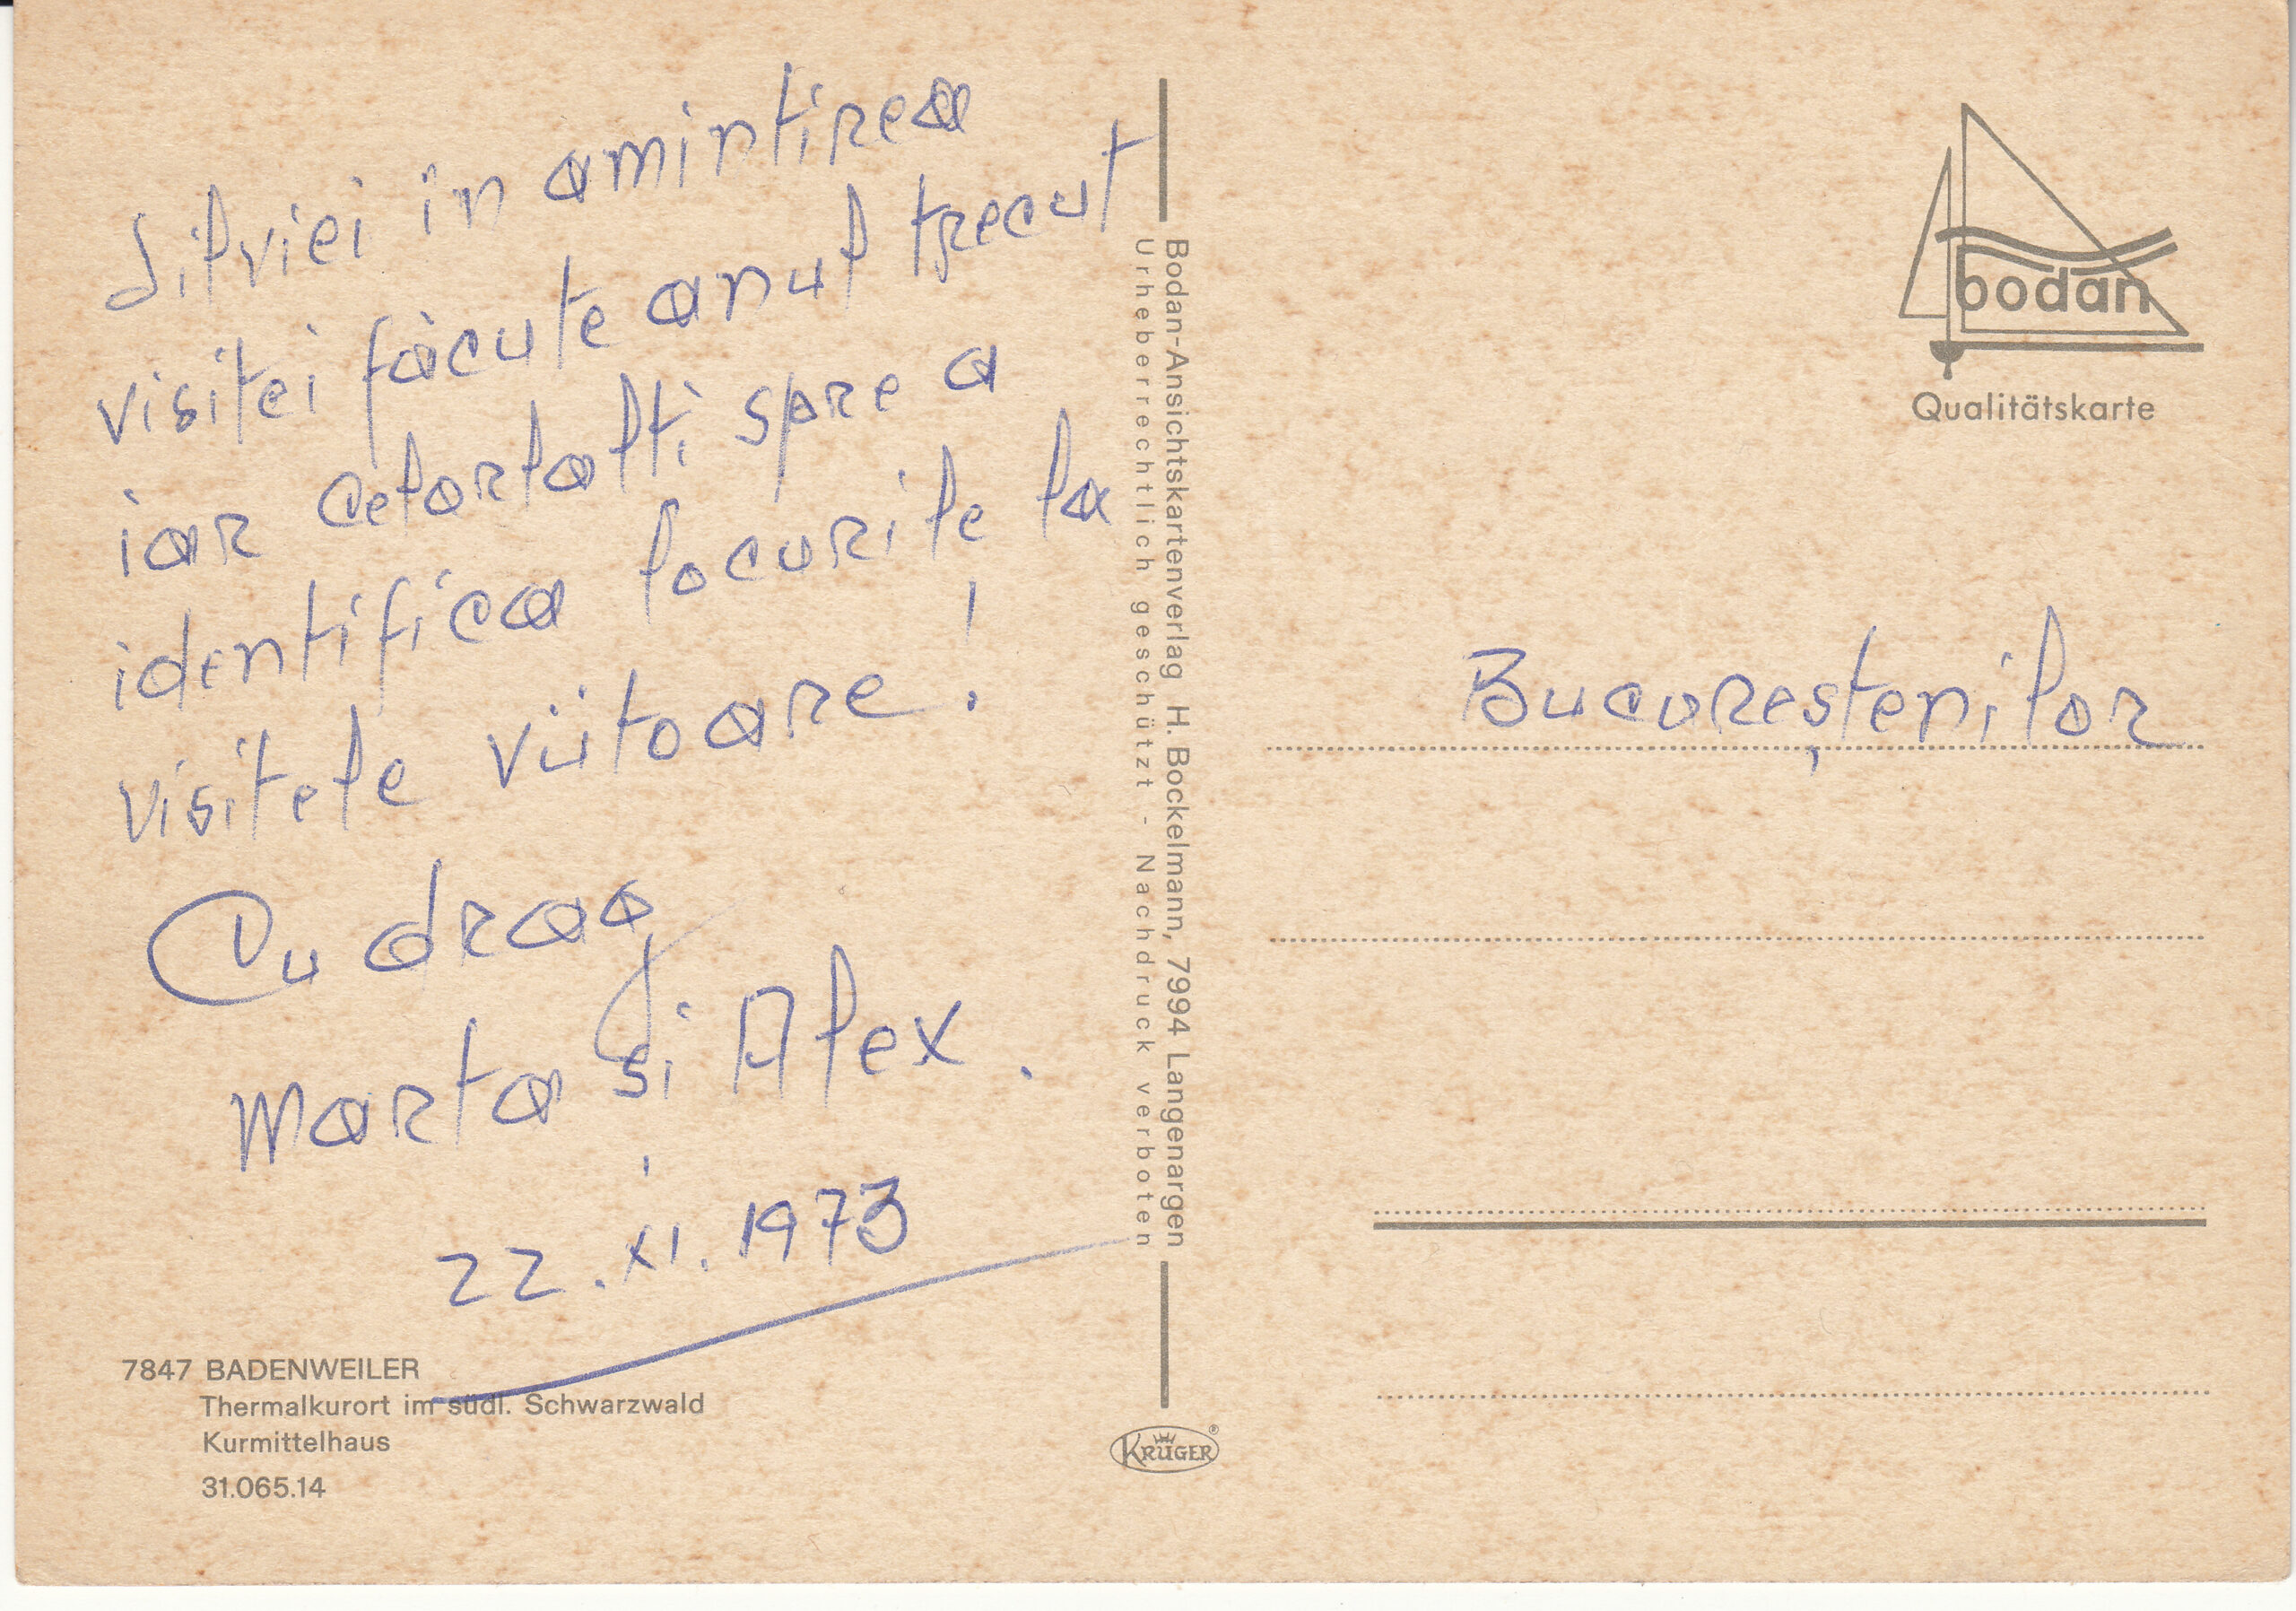 Silviei in amintirea
visitei făcute anul trecut
iar celorlalti spre a
identifica locurile la
visitele viitoare!
Cu drag
Marta și Alex.
22.XI.1973
7847 BADENWEILER
Thermalkurort im südl. Schwarzwald
Kurmittelhaus
31.065.14
Bodan-Ansichtskartenverlag H. Bockelmann, 7994 Langenargen
Urheberrechtlich geschützt - Nachdruck verboten
KRÜGER®
bodan
Qualitätskarte
Bucureștenilor